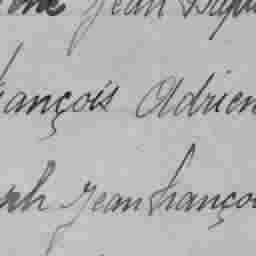 Jean Bap
rançois Adrien
ph Jean françoi